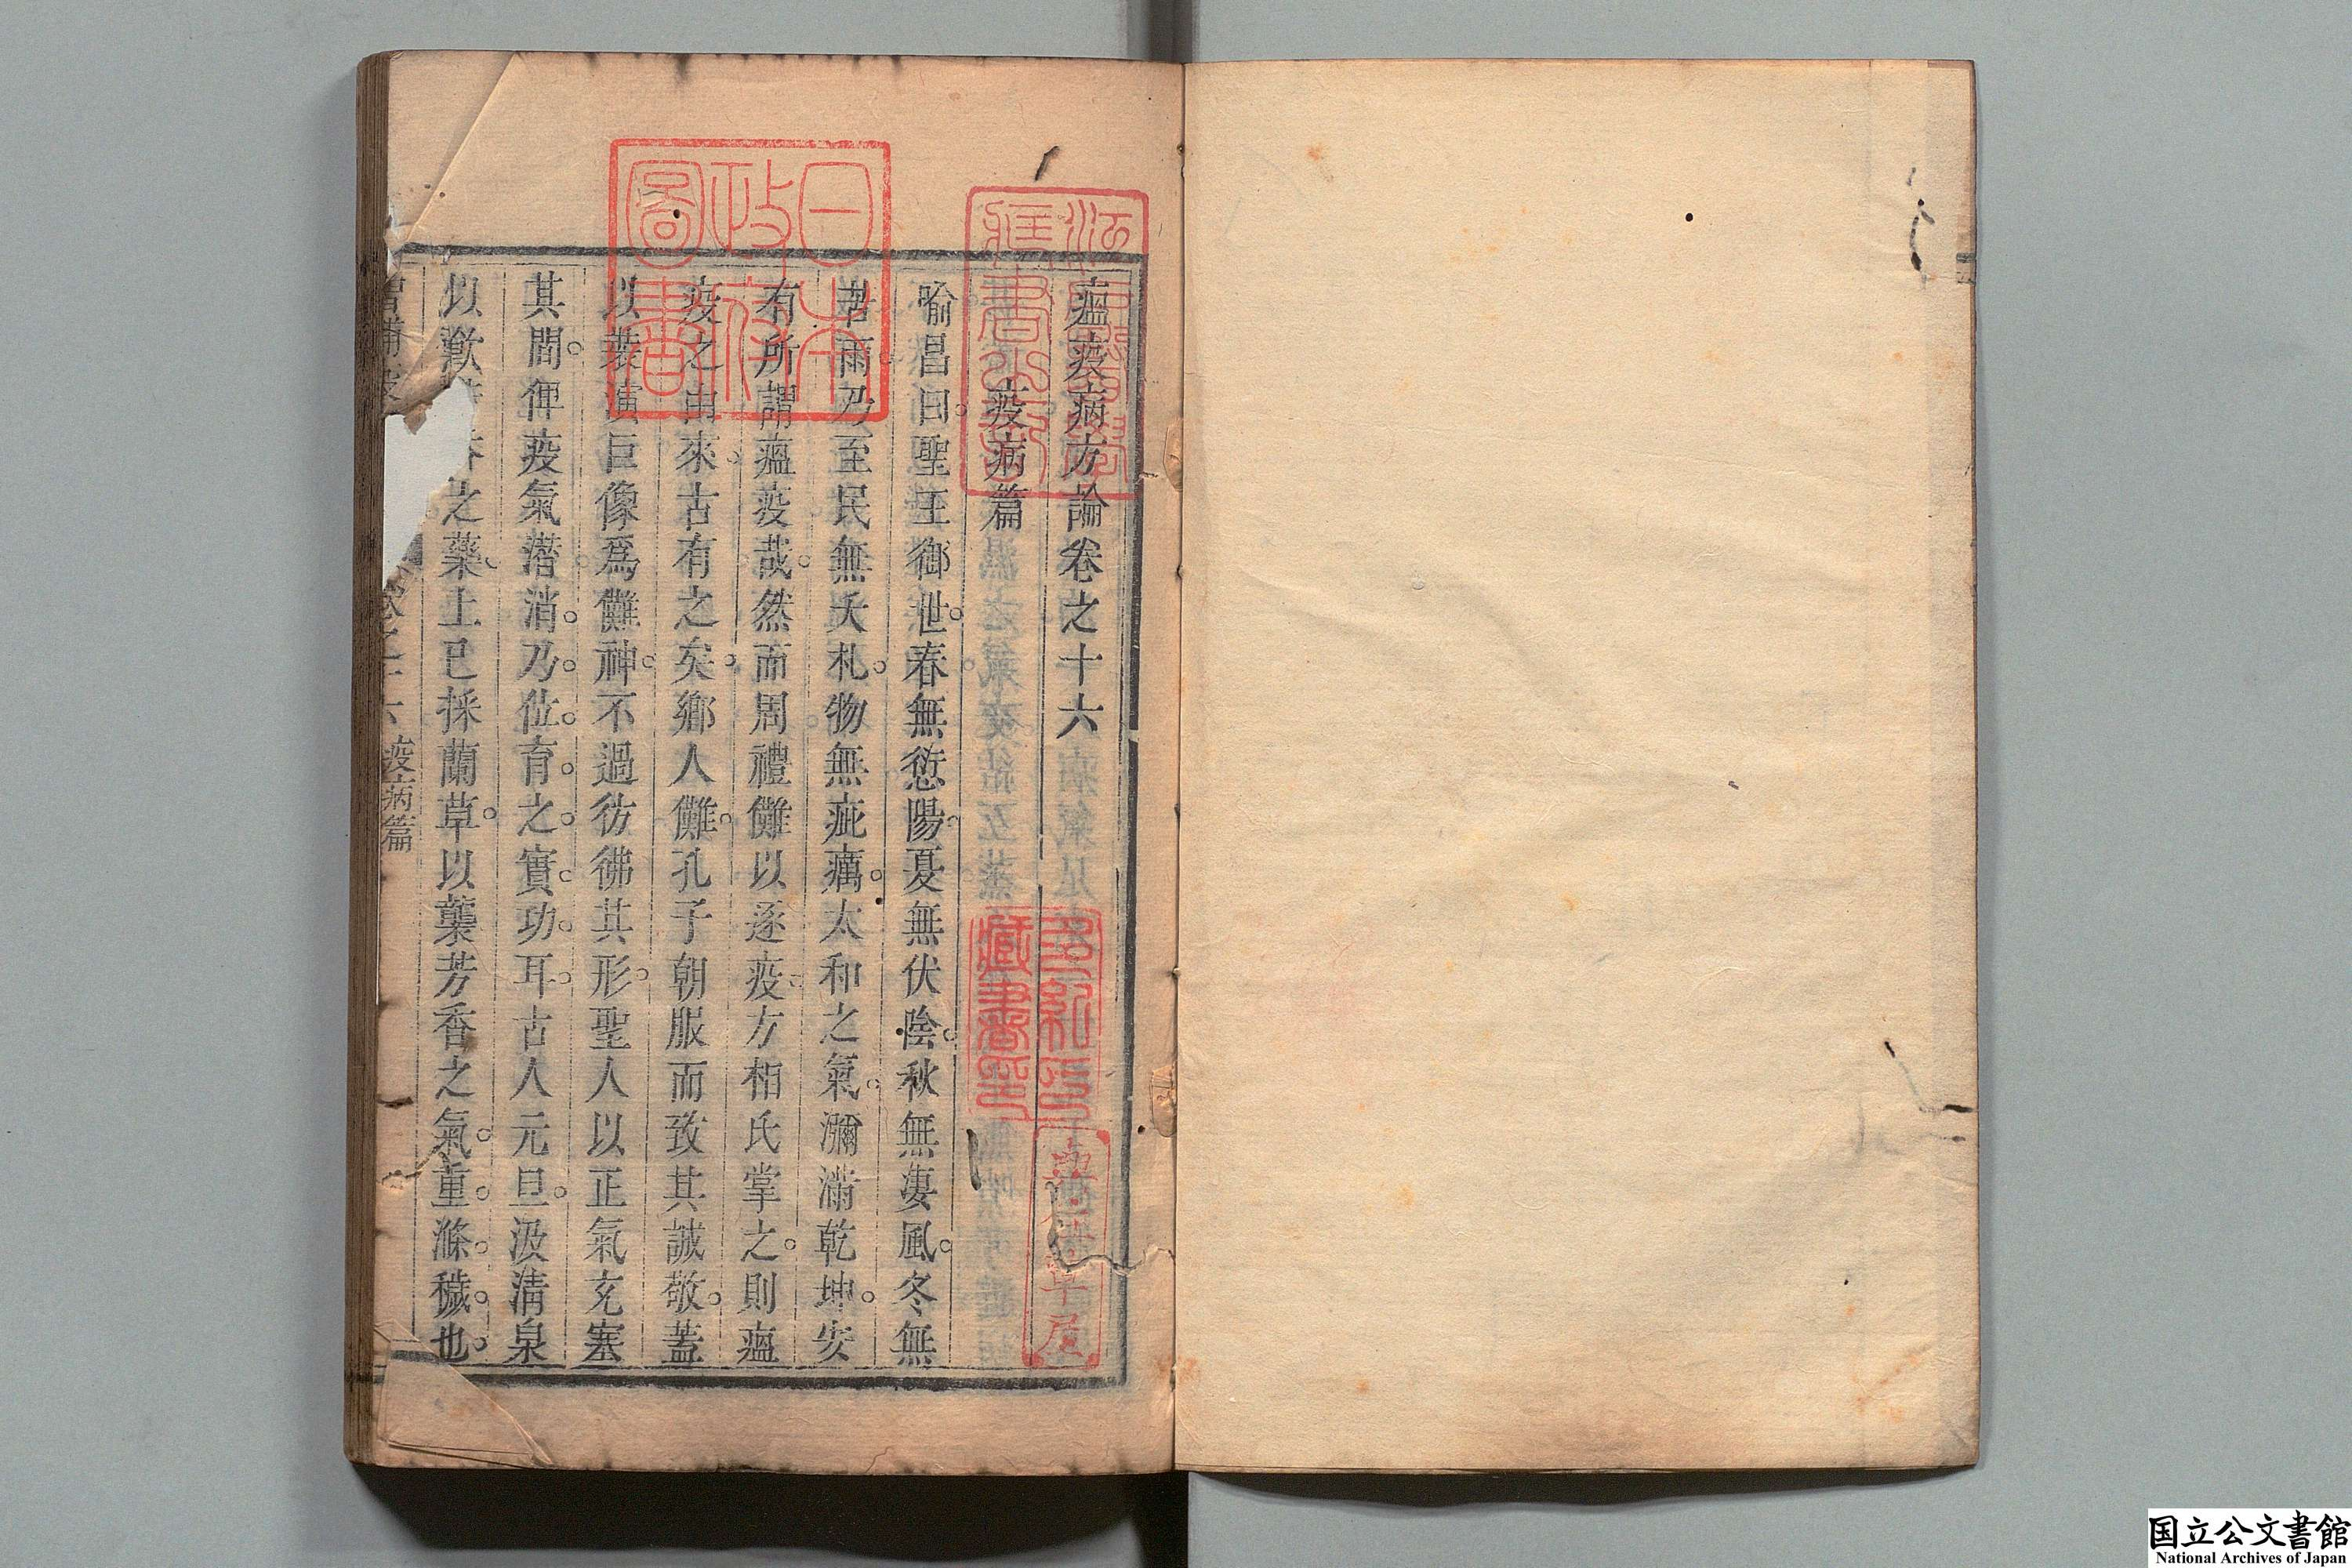 瘟疫病方論卷之十六
疫病篇
喻昌曰。聖王御世。春無愆陽。夏無伏陰。秋無凄風。冬無
苦雨。乃至民無夭札。物無疵癘。太和之氣。瀰滿乾坤。安
有所謂瘟疫哉。然而周禮儺以逐疫。方相氏掌之。則瘟
疫之由來。古有之矣。鄉人儺。孔子朝服而致其誠敬。蓋
以裝演巨像爲儺神。不過彷彿其形。聖人以正氣充塞
其間。俾疫氣潛消。乃。位。育。之。實。功。耳。古人元旦。汲清泉
以飲 香之藥。上巳採蘭草。以襲芳香之氣。重。滌。穢。也。
卷之十六 疫病篇
日本
政府
圖書
江戸醫學
藏書之記
多紀氏
藏書印
草屋
国立公文書館
National Archives of Japan